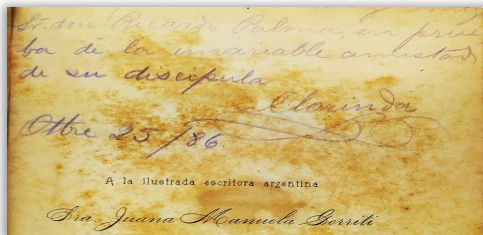 Sr. don Ricardo Palma, en prue
ba de la invariable amistad
de su discípula
Clorinda
Otbre 25/86
A la ilustrada escritora argentina
Sra. Juana Manuela Gorriti